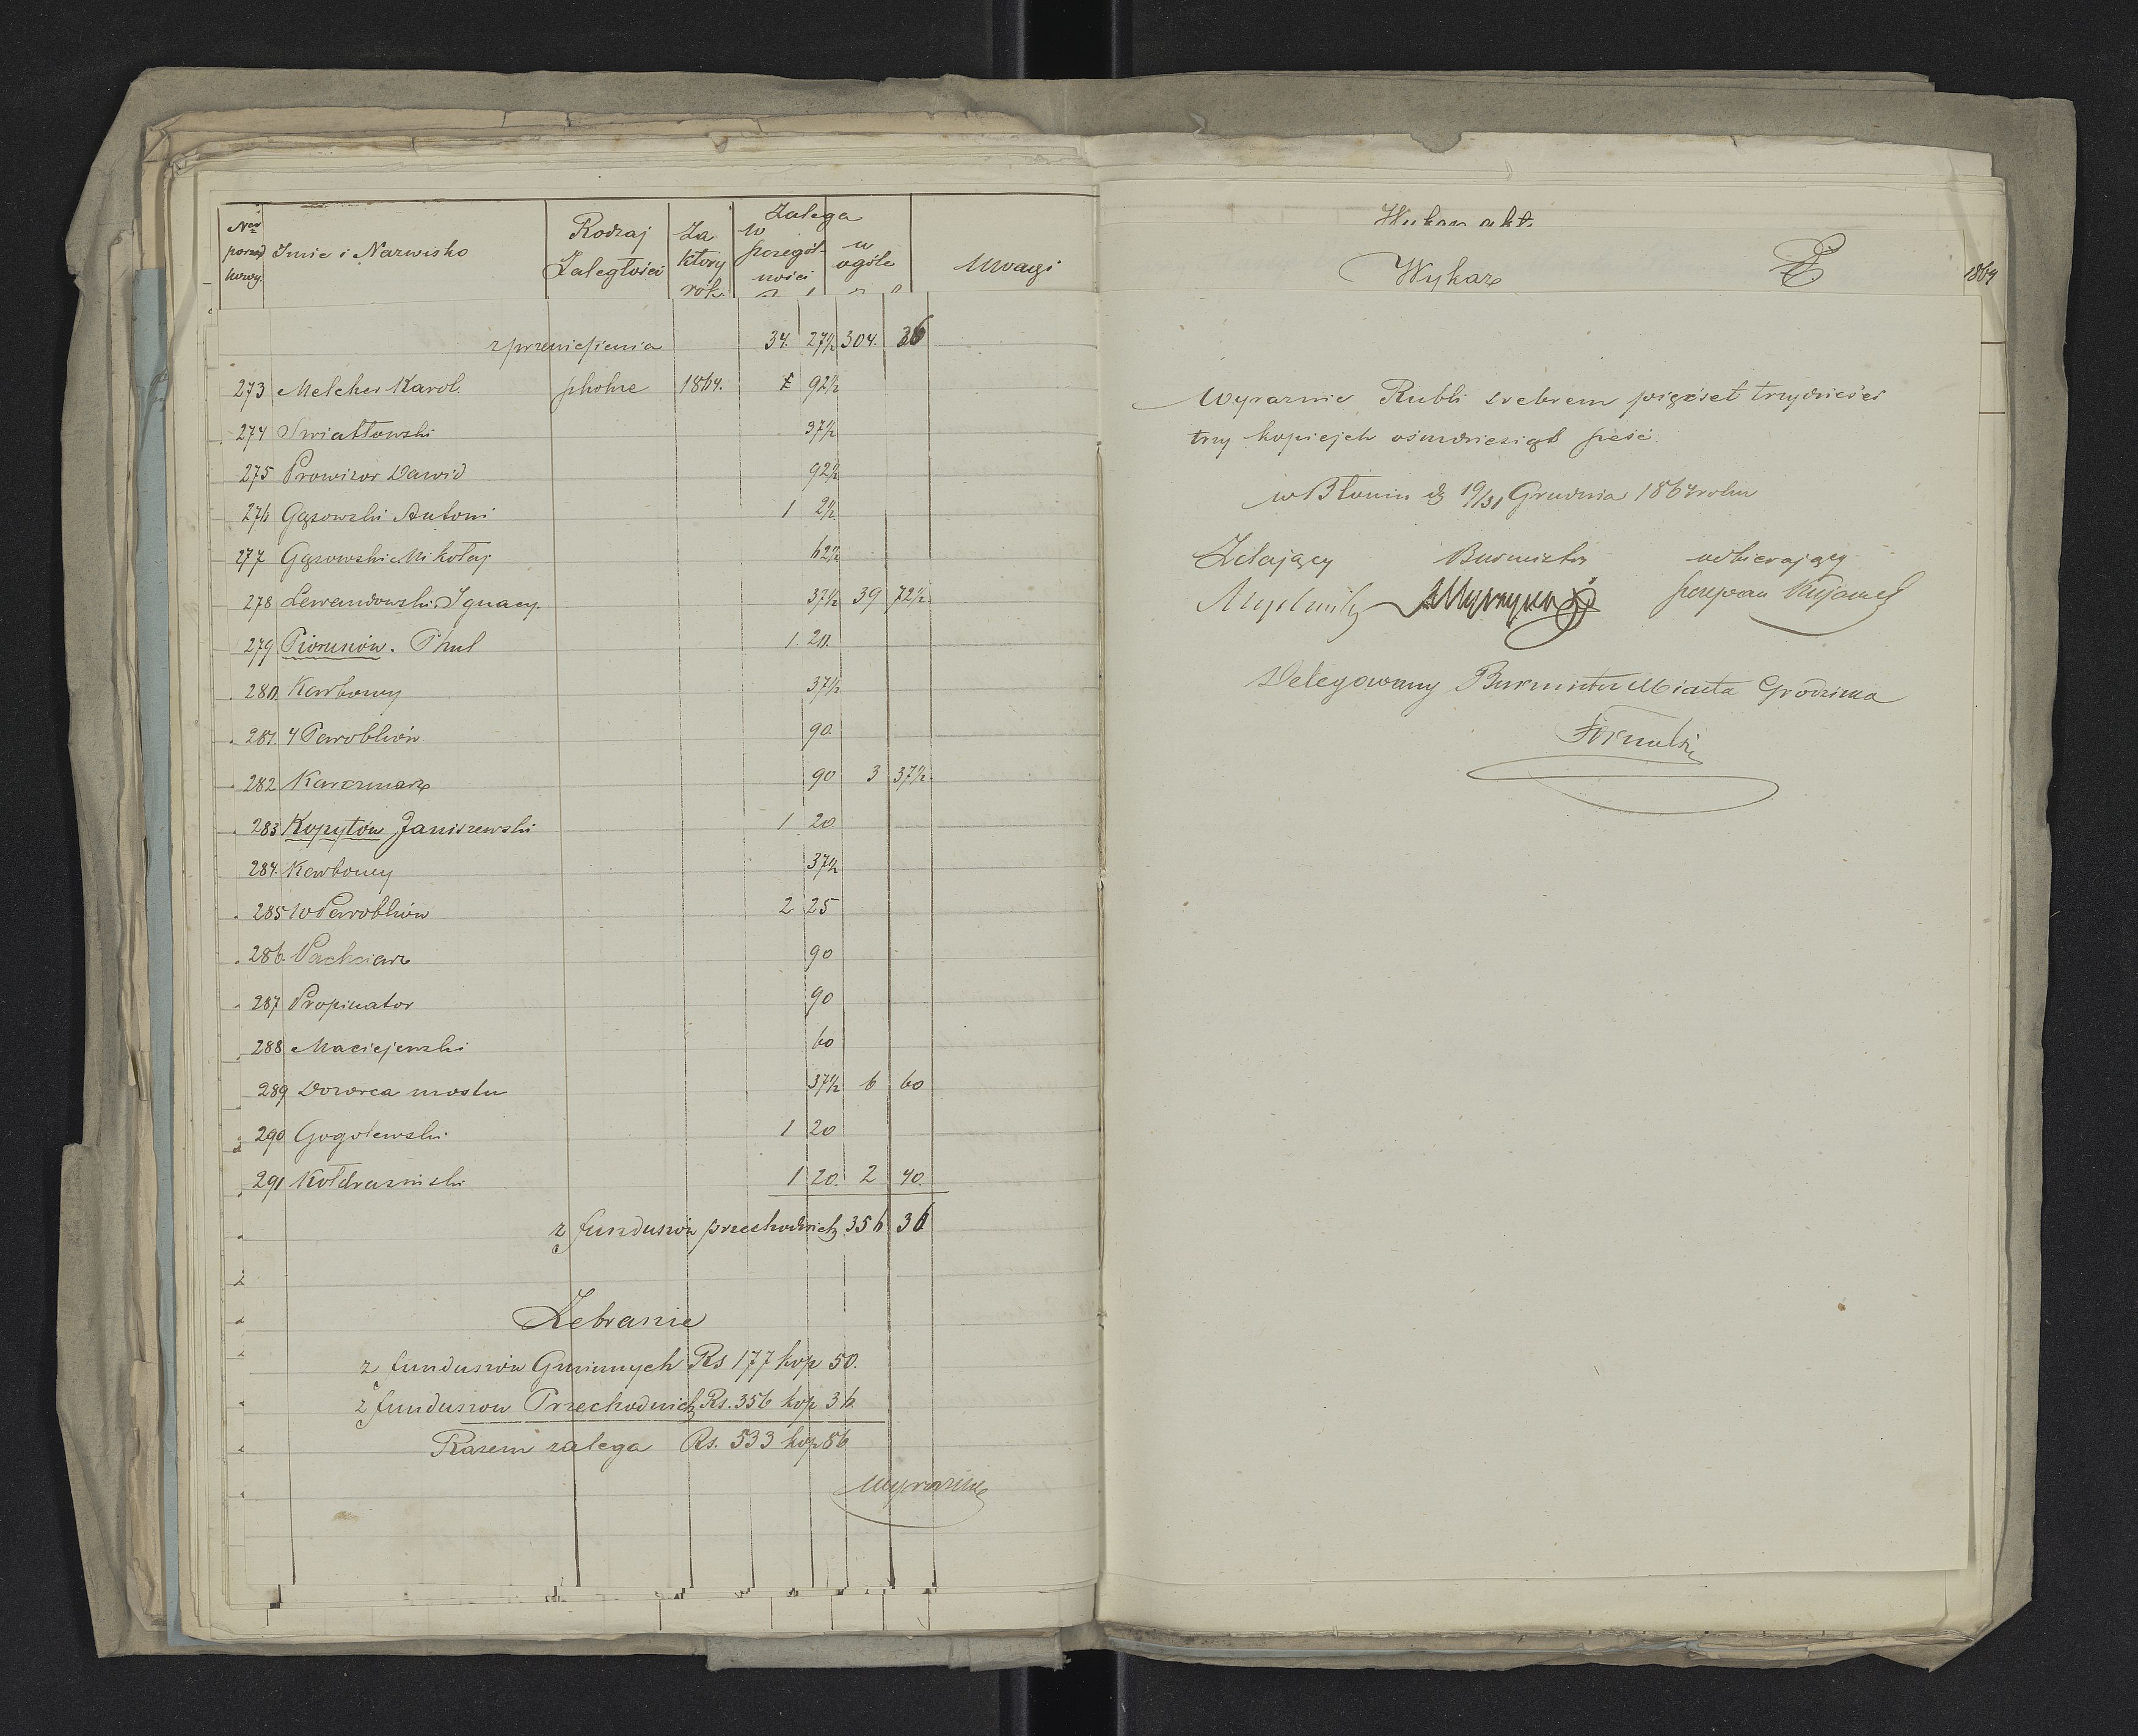 Ner porząd kowy. Imie i Nazwisko Rodzaj Zaległości Za ktory rok Zalega w szczegól- ności w ogóle Uwagi
z przeniesienia 34. 27½ 304. 36
273 Melcher Karol szkolne 1864. 1 92½
274 Swiatłowski 37½
275 Prowizor Dawid 92½
276 Gąsowski Antoni 1 2½
277 Gąsowski Mikołaj 62½
278 Lewandowski Ignacy. 37½ 39 72½
279 Piorunów. 1. 20.
280. Karbowy 37½
281. 4 Parobków 90.
282 Karczmarz 90 3 37½
283 Kopytów Janiszewski 1 20.
284. Karbowy 37½
285 10 Parobków 2 25
286. Pachciarz 90
287 Propinator 90
288 Maciejewski 60
289 Dozorca mostu 37½ 6 60
290 Gogolewski 1 20
291 1 20. 2 40.
z funduszów przechodnich 356 36
Zebranie
z funduszów Gminnych Rs 177 kop 50.
z funduszow Przechodnich Rs. 356 kop 36.
Razem zalega Rs. 533 kop 86
Wyraznie
Wykaz akt
Wykaz 1864
Wyraznie Rubli srebrem pięćset trzydzieści
trzy kopiejek ośmdziesiąt sześć.
w Błoniu d 19/31 Grudnia 1864 roku
Zdający Burmistrz odbierający
Delegowany Burmistrz Miasta Grodziska